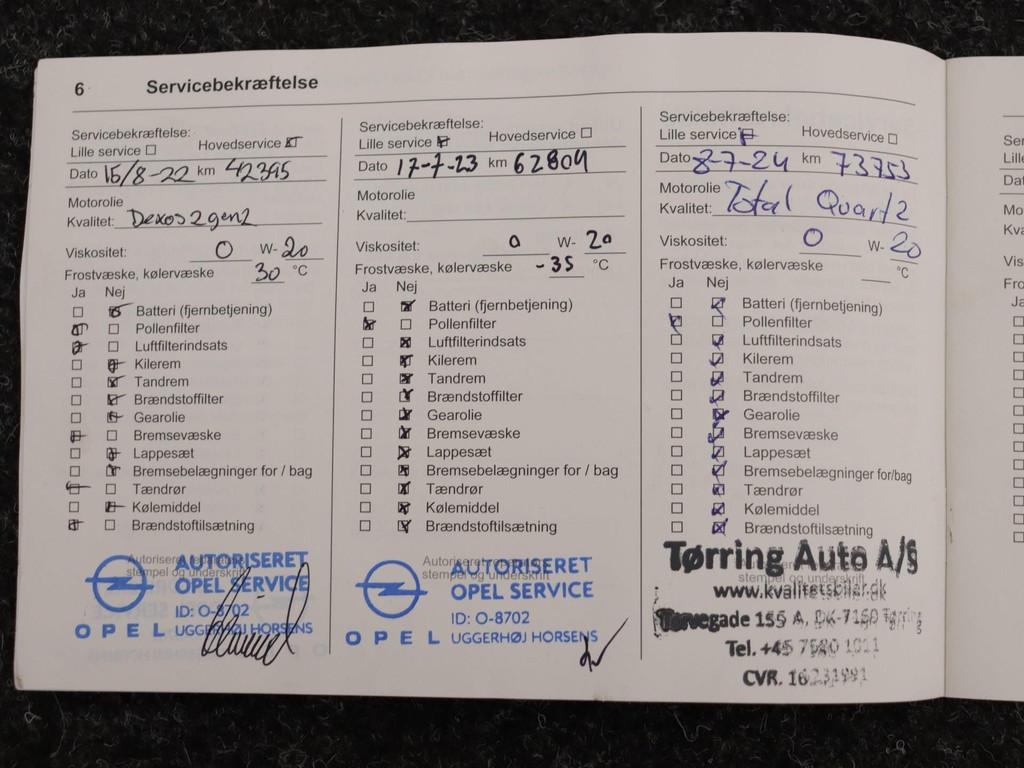 6 Servicebekræftelse
Servicebekræftelse:
Lille service Hovedservice
Dato 15/8-22 km 42395
Motorolie
Kvalitet: Dexos2gen2
Viskositet: 0 W- 20
Frostvæske, kølervæske 30 °C
Ja Nej
Batteri (fjernbetjening)
Pollenfilter
Luftfilterindsats
Kilerem
Tandrem
Brændstoffilter
Gearolie
Bremsevæske
Lappesæt
Bremsebelægninger for / bag
Tændrør
Kølemiddel
Brændstoftilsætning
stempel og underskrift
AUTORISERET
OPEL SERVICE
ID: O-8702
OPEL UGGERHØJ HORSENS
Servicebekræftelse:
Lille service Hovedservice
Dato 17-7-23 km 62804
Motorolie
Kvalitet:
Viskositet: 0 W- 20
Frostvæske, kølervæske -35 °C
Ja Nej
Batteri (fjernbetjening)
Pollenfilter
Luftfilterindsats
Kilerem
Tandrem
Brændstoffilter
Gearolie
Bremsevæske
Lappesæt
Bremsebelægninger for / bag
Tændrør
Kølemiddel
Brændstoftilsætning
stempel og underskrift
AUTORISERET
OPEL SERVICE
ID: O-8702
OPEL UGGERHØJ HORSENS
Servicebekræftelse:
Lille service Hovedservice
Dato 8-7-24 km 73753
Motorolie Total Quartz
Kvalitet:
Viskositet: 0 W- 20
Frostvæske, kølervæske °C
Ja Nej
Batteri (fjernbetjening)
Pollenfilter
Luftfilterindsats
Kilerem
Tandrem
Brændstoffilter
Gearolie
Bremsevæske
Lappesæt
Bremsebelægninger for/bag
Tændrør
Kølemiddel
Brændstoftilsætning
stempel og underskrift
Tørring Auto A/S
www.kvalitetsbiler.dk
Torvegade 155 A, DK-7160 Tørring
Tel. +45 7580 1011
CVR. 16231991